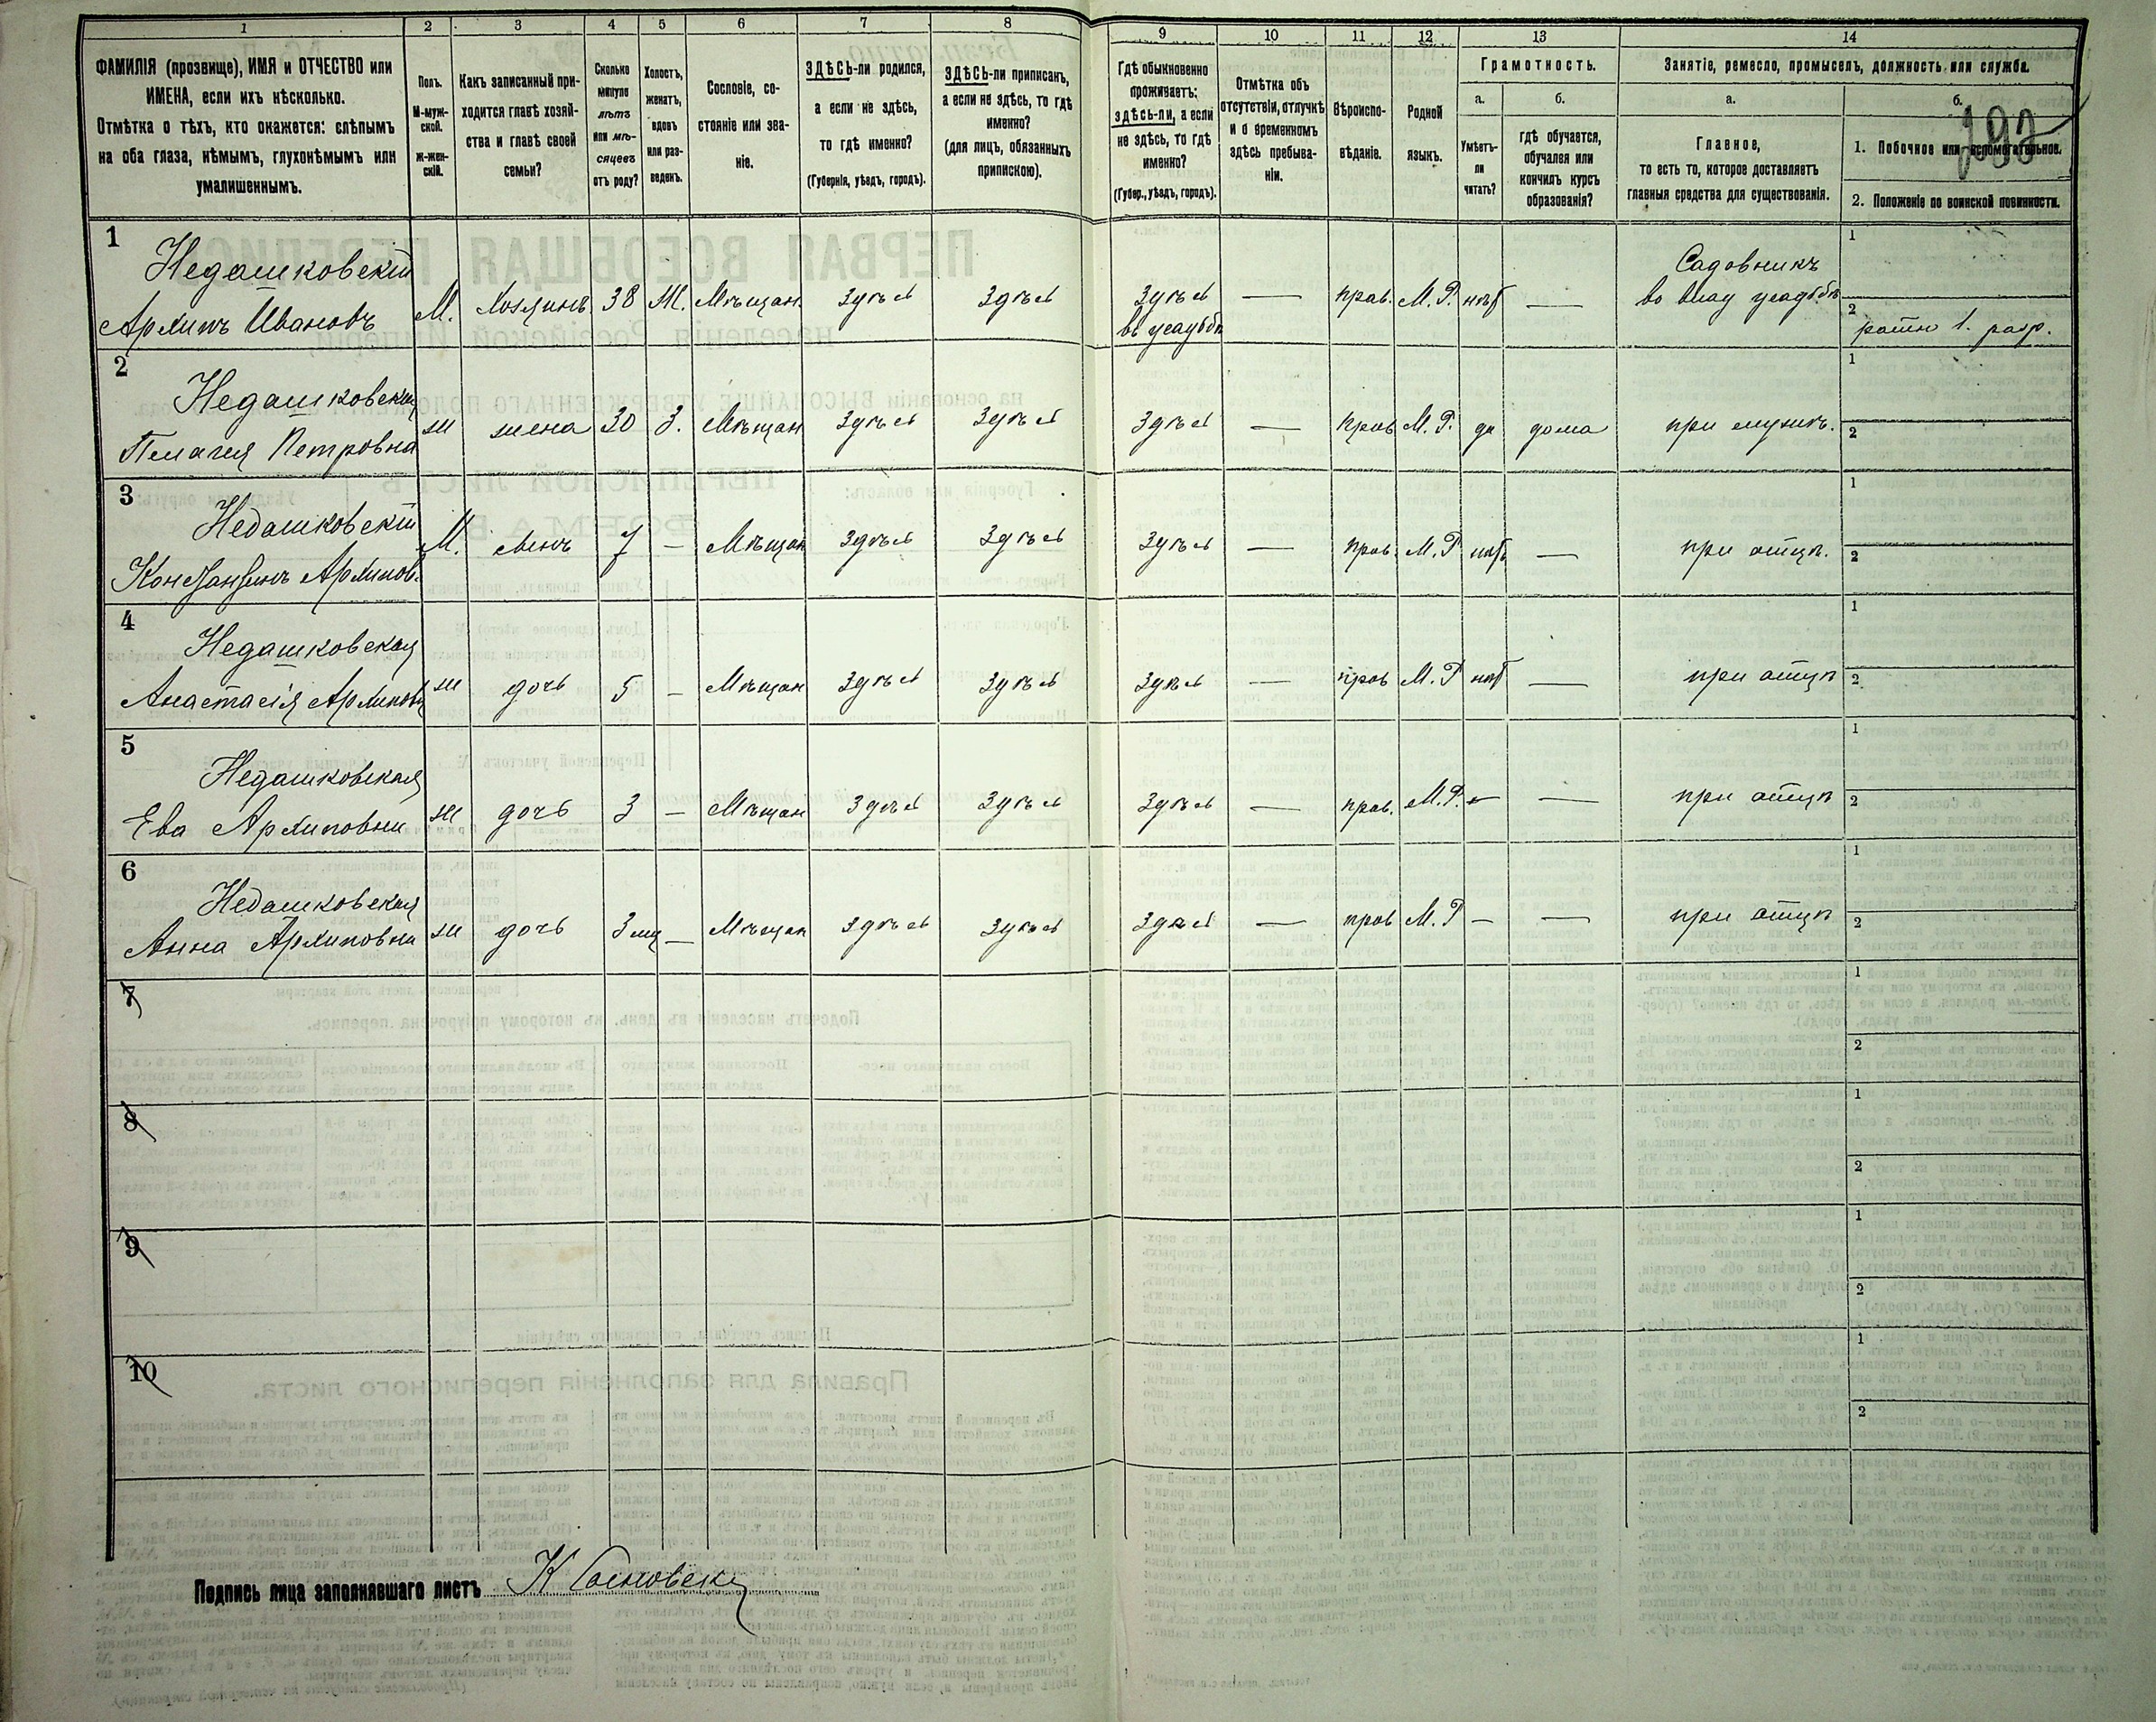 1 2 3 4 5 6 7 8 9 10 11 12 13 14
ФАМИЛІЯ (прозвище), ИМЯ и ОТЧЕСТВО или
ИМЕНА, если ихъ нѣсколько.
Отмѣтка о тѣхъ, кто окажется: слѣпымъ
на оба глаза, нѣмымъ, глухонѣмымъ или
умалишеннымъ.
Полъ.
М-муж-
ской.
Ж-жен-
скій.
Какъ записанный при-
ходится главѣ хозяй-
ства и главѣ своей
семьи?
Сколько
минуло
лѣтъ
или мѣ-
сяцевъ
отъ роду?
Холостъ,
женатъ,
вдовъ
или раз-
веденъ.
Сословіе, со-
стояніе или зва-
ніе.
ЗДѢСЬ-ли родился,
а если не здѣсь,
то гдѣ именно?
(Губернія, уѣздъ, городъ).
ЗДѢСЬ-ли приписанъ,
а если не здѣсь, то гдѣ
именно?
(для лицъ, обязанныхъ
припискою).
Гдѣ обыкновенно
проживаетъ:
здѣсь-ли, а если
не здѣсь, то гдѣ
именно?
(Губер., уѣздъ, городъ).
Отмѣтка объ
отсутствіи, отлучкѣ
и о временномъ
здѣсь пребыва-
ніи.
Вѣроиспо-
вѣданіе.
Родной
языкъ.
Грамотность.
а.
Умѣетъ-
ли
читать?
б.
гдѣ обучается,
обучался или
кончилъ курсъ
образованія?
Занятіе, ремесло, промыселъ, должность или служба.
а.
Главное,
то есть то, которое доставляетъ
главныя средства для существованія.
б.
1. Побочное или вспомогательное.
2. Положеніе по воинской повинности.
1
Недашковскій
Архипъ Ивановъ
М. Хозяинъ 38 Ж. Мѣщан. Здѣсь Здѣсь Здѣсь
въ усадьбѣ
— прав. М. Р. нѣт —
Садовникъ
1
2
ратн 1. разр.
2
Недашковская
Пелагея Петровна
ж жена 30 З. Мѣщан Здѣсь Здѣсь Здѣсь — прав М. Р. да дома при мужѣ.
1
2
3
Недашковскій
Константинъ Архипов.
М. сынъ 7 — Мѣщан Здѣсь Здѣсь Здѣсь — прав. М. Р нѣтъ — при отцѣ.
1
2
4
Недашковская
Анастасія Архиповн
ж дочь 5 — Мѣщан Здѣсь Здѣсь Здѣсь — прав М. Р нѣт — при отцѣ
1
2
5
Недашковская
Ева Архиповна
ж дочь 3 — Мѣщан Здѣсь Здѣсь Здѣсь — прав. М. Р. — — при отцѣ
1
2
6
Недашковская
Анна Архиповна
ж дочь 3 мц — Мѣщан Здѣсь Здѣсь Здѣсь — прав М. Р — — при отцѣ
1
2
7
1
2
8
1
2
9
1
2
10
1
2
Подпись лица заполнявшаго листъ К Сосновск